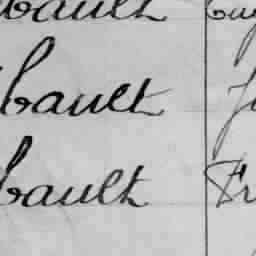 bault
bault
bault Fr